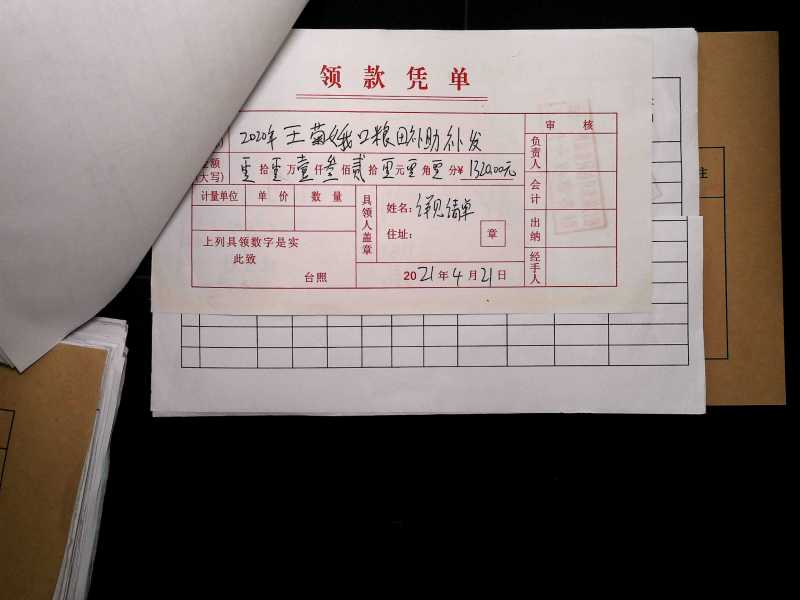 领款凭单
2020年王菊娥口粮田补助补发
金额
(大写)
零拾零万壹仟叁佰贰拾零元零角零分¥1320.00元
计量单位 单价 数量
具领人盖章
姓名:详见清单
住址:
章
上列具领数字是实
此致
台照
2021年4月21日
审核
负责人
会计
出纳
经手人